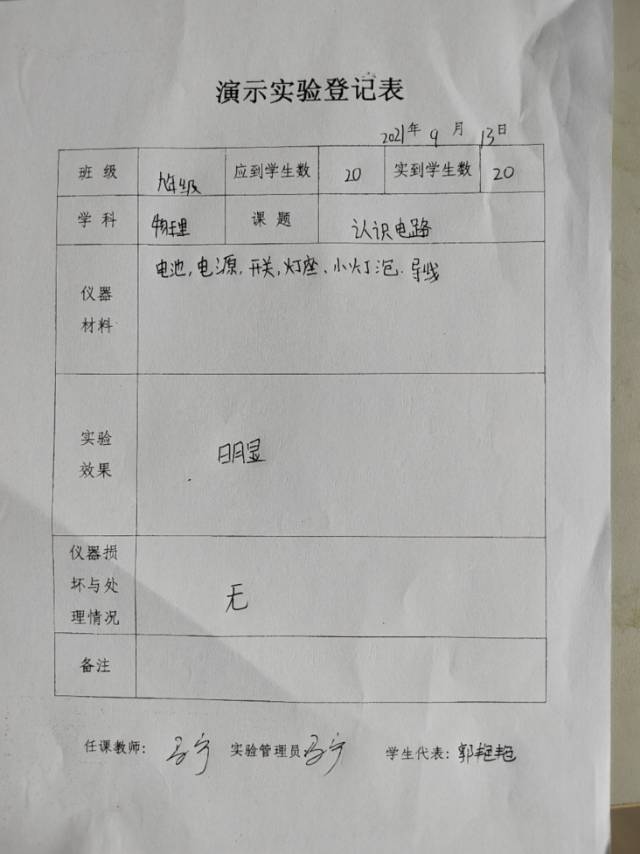 演示实验登记表
2021年 9 月 13日
班 级 九年级 应到学生数 20 实到学生数 20
学 科 物理 课 题 认识电路
仪器
材料
电池,电源,开关,灯座、小灯泡.导线
实验
效果
明显
仪器损
坏与处
理情况
无
备注
任课教师: 实验管理员 学生代表:郭艳艳